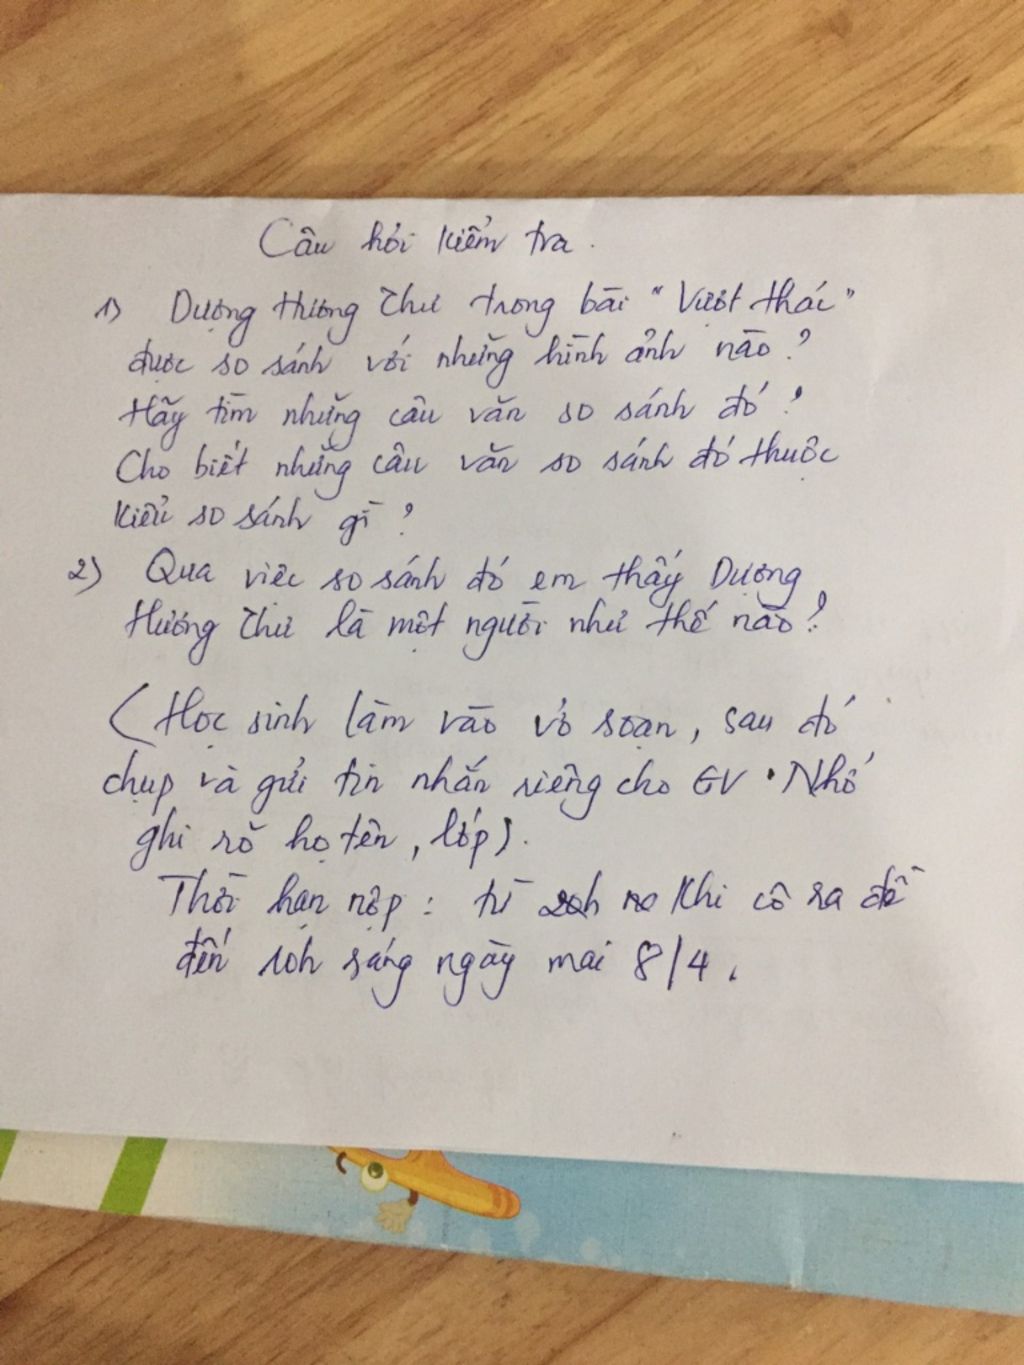 Câu hỏi kiểm tra.
1) Dượng Hương Thư trong bài "Vượt thác"
được so sánh với những hình ảnh nào?
Hãy tìm những câu văn so sánh đó?
Cho biết những câu văn so sánh đó thuộc
kiểu so sánh gì?
2) Qua việc so sánh đó em thấy Dượng
Hương Thư là một người như thế nào?
(Học sinh làm vào vở soạn, sau đó
chụp và gửi tin nhắn riêng cho GV. Nhớ
ghi rõ họ tên, lớp).
Thời hạn nộp: từ khi cô ra đề
đến 10h sáng ngày mai 8/4.